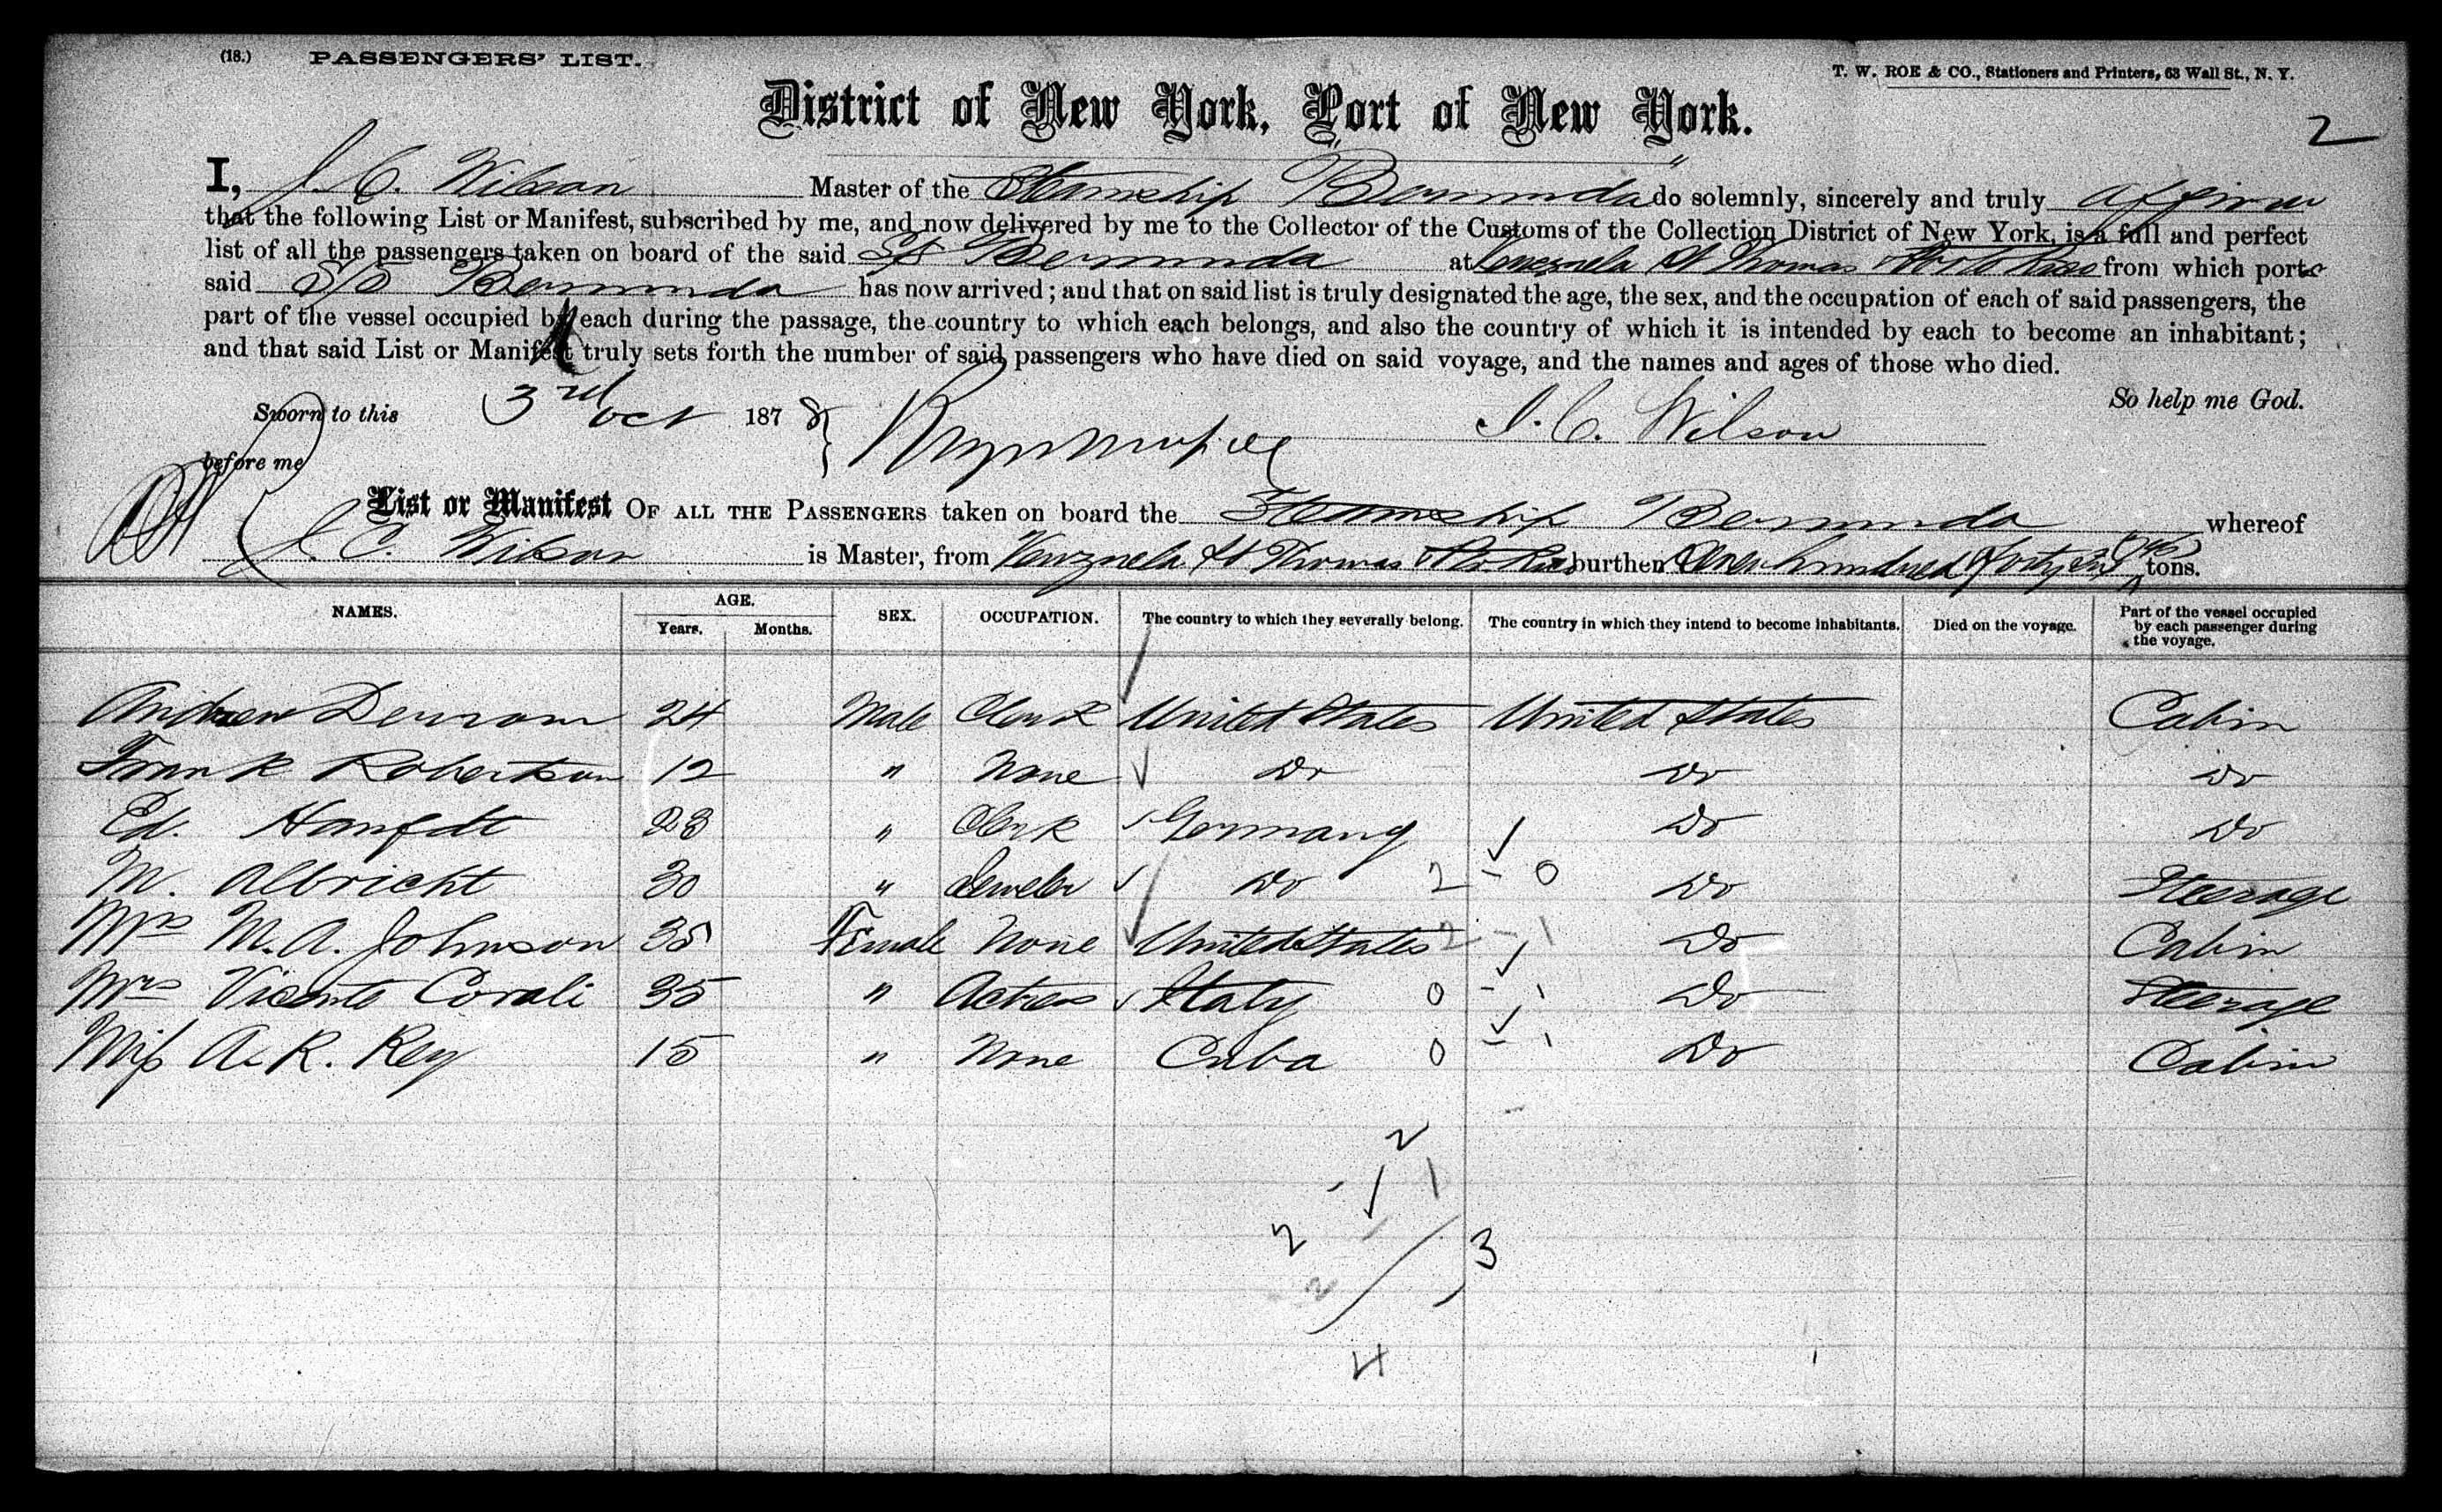 (18.) PASSENGERS' LIST.
T. W. ROE & CO., Stationers and Printers, 63 Wall St., N. Y.
District of New York, Port of New York.
2
I, J. C. Wilson Master of the Steamship "Bermuda" do solemnly, sincerely and truly affirm
that the following List or Manifest, subscribed by me, and now delivered by me to the Collector of the Customs of the Collection District of New York, is a full and perfect
list of all the passengers taken on board of the said SS Bermuda at Venezuela St Thomas Porto Rico from which ports
said S/S Bermuda has now arrived; and that on said list is truly designated the age, the sex, and the occupation of each of said passengers, the
part of the vessel occupied by each during the passage, the country to which each belongs, and also the country of which it is intended by each to become an inhabitant;
and that said List or Manifest truly sets forth the number of said passengers who have died on said voyage, and the names and ages of those who died.
So help me God.
Sworn to this 3rd Oct 1878 J. C. Wilson
before me
List or Manifest OF ALL THE PASSENGERS taken on board the Steamship Bermuda whereof
J. C. Wilson is Master, from Venezuela St Thomas Porto Rico burthen hundred forty tons.
NAMES. AGE. Years. Months. SEX. OCCUPATION. The country to which they severally belong. The country in which they intend to become inhabitants. Died on the voyage. Part of the vessel occupied by each passenger during the voyage.
Andrew 24 Male Clerk United States United States Cabin
Frank Robertson 12 " None Do Do Do
Ed. 28 " Clerk Germany Do Do
M. Albricht 30 " Jeweler Do 2 - 0 Do Steerage
Mrs M. A. Johnson 35 Female None United States 2 - 1 Do Cabin
Mrs Vicente Corali 35 " Actress Italy 0 - 1 Do Steerage
Miss A. R. Rey 15 " None Cuba 0 - 1 Do Cabin
2
1 1
2 3
2
4